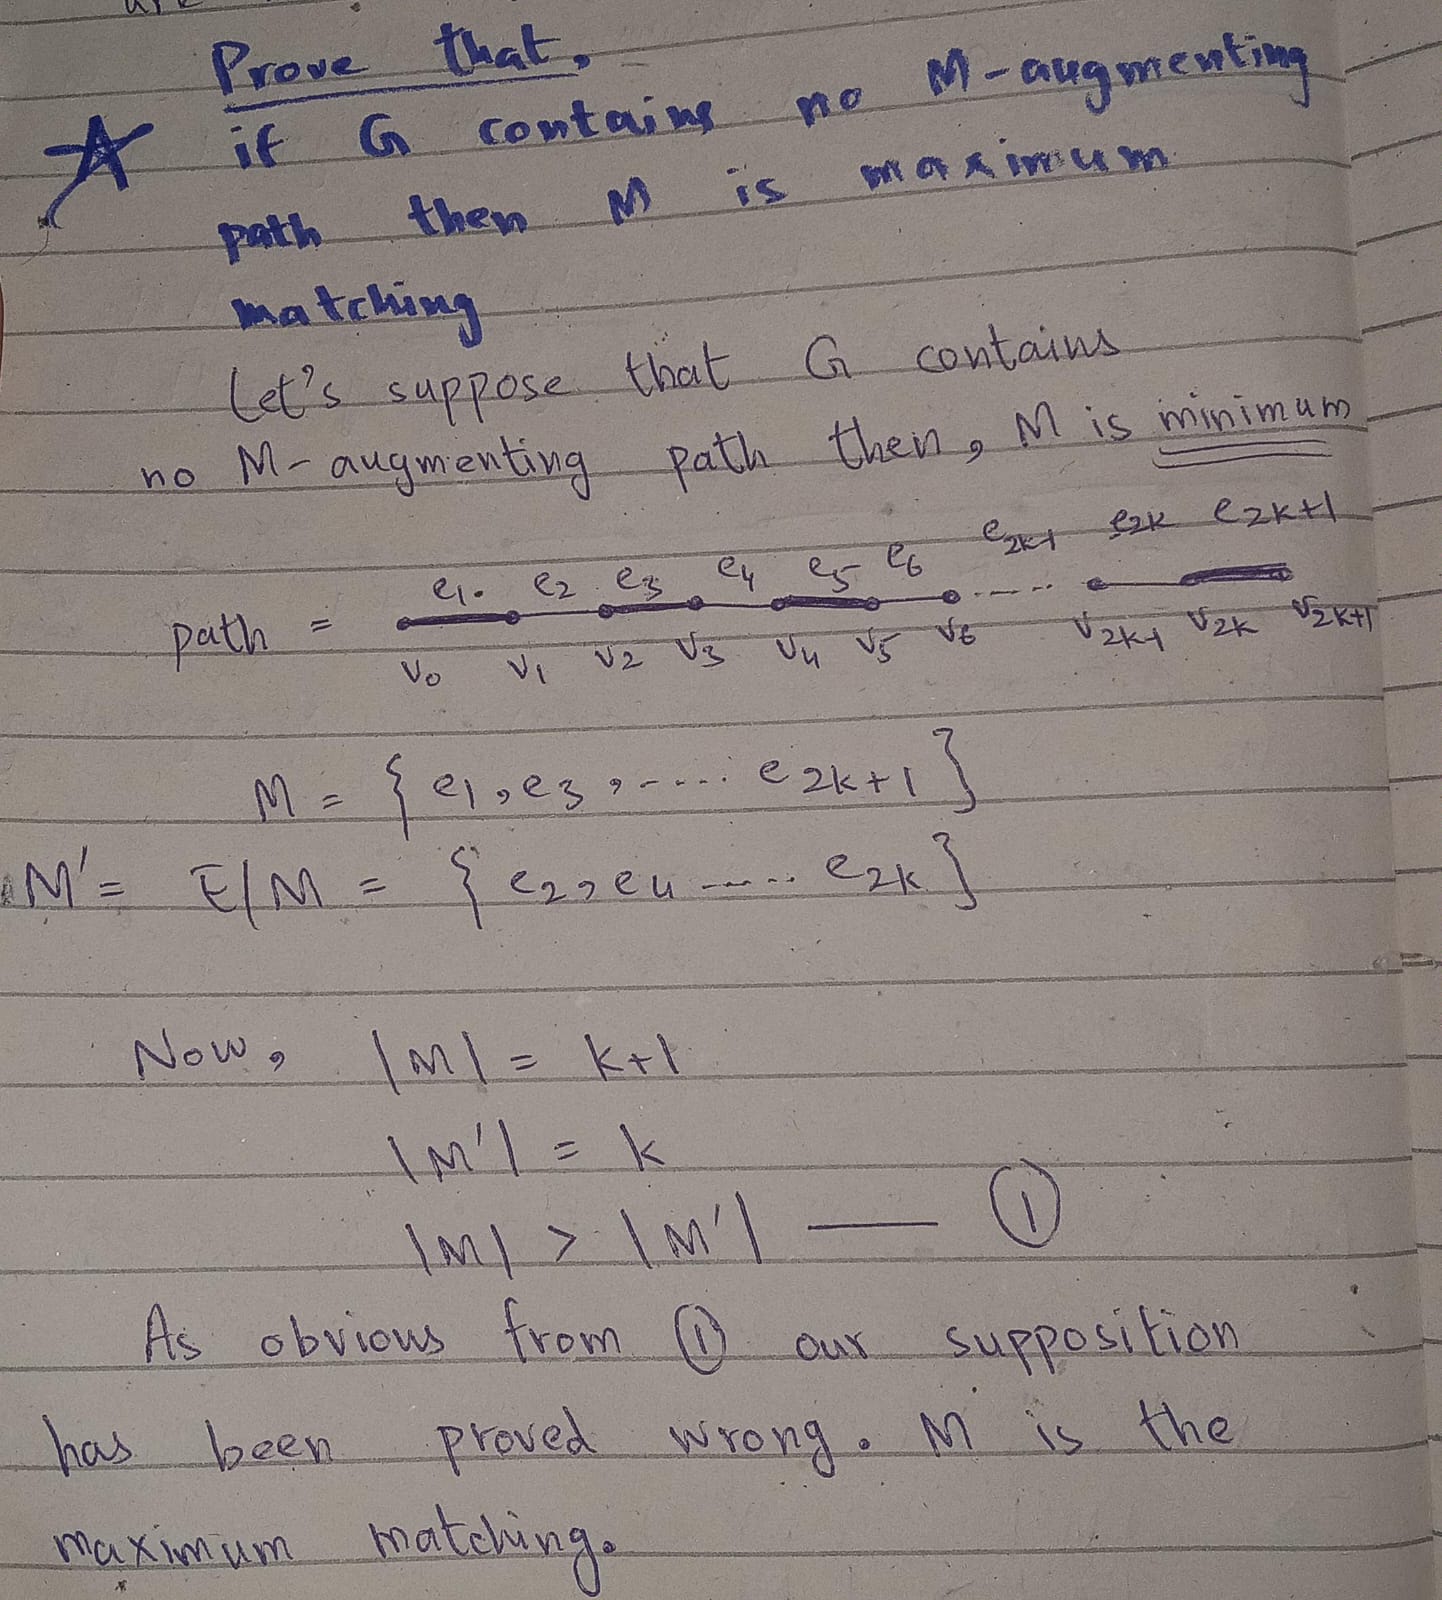 Prove that,
if G contains no M-augmenting
path then M is maximum
matching
Let's suppose that G contains
no M-augmenting path then, M is minimum
e1 e2 e3 e4 e5 e6 e2k-1 e2k e2k+1
path =
v0 v1 v2 v3 v4 v5 v6 v2k-1 v2k v2k+1
M = { e1, e3, ----- e2k+1 }
M' = E/M = { e2, e4 ----- e2k }
Now, |M| = k+1
|M'| = k
|M| > |M'| — ①
As obvious from ① our supposition
has been proved wrong. M is the
maximum matching.